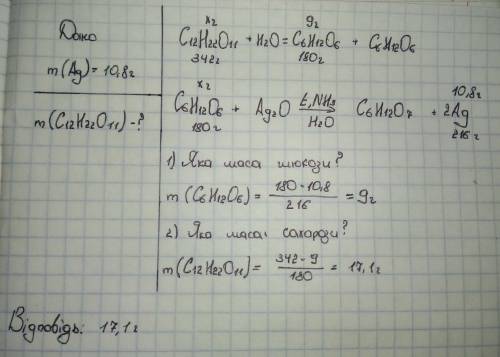 Дано
m(Ag)=10,8г
m(C12H22O11)-?
xг 9г
C12H22O11 + H2O = C6H12O6 + C6H12O6
342г 180г
xг 10,8г
C6H12O6 + Ag2O t,NH3→ H2O C6H12O7 + 2Ag
180г 216г
1) Яка маса глюкози?
m(C6H12O6) = 180·10,8 / 216 = 9г
2) Яка маса сахарози?
m(C12H22O11) = 342·9 / 180 = 17,1г
Відповідь: 17,1г